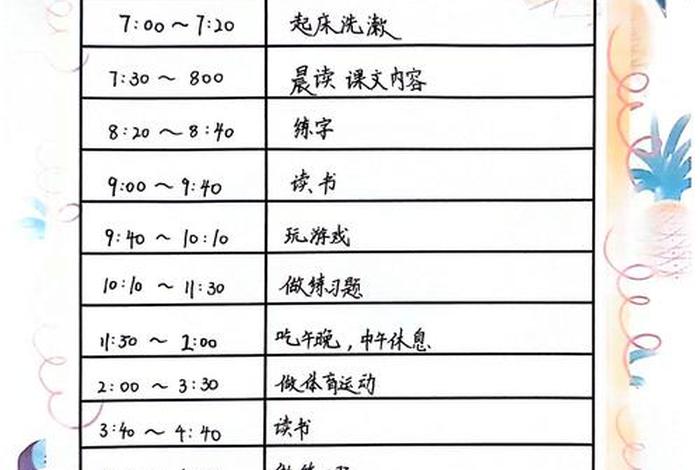 7:00～7:20 起床洗漱
7:30～800 晨读 课文内容
8:20～8:40 练字
9:00～9:40 读书
9:40～10:10 玩游戏
10:10～11:30 做练习题
11:30～2:00 吃午晚，中午休息
2:00～3:30 做体育运动
3:40～4:40 读书